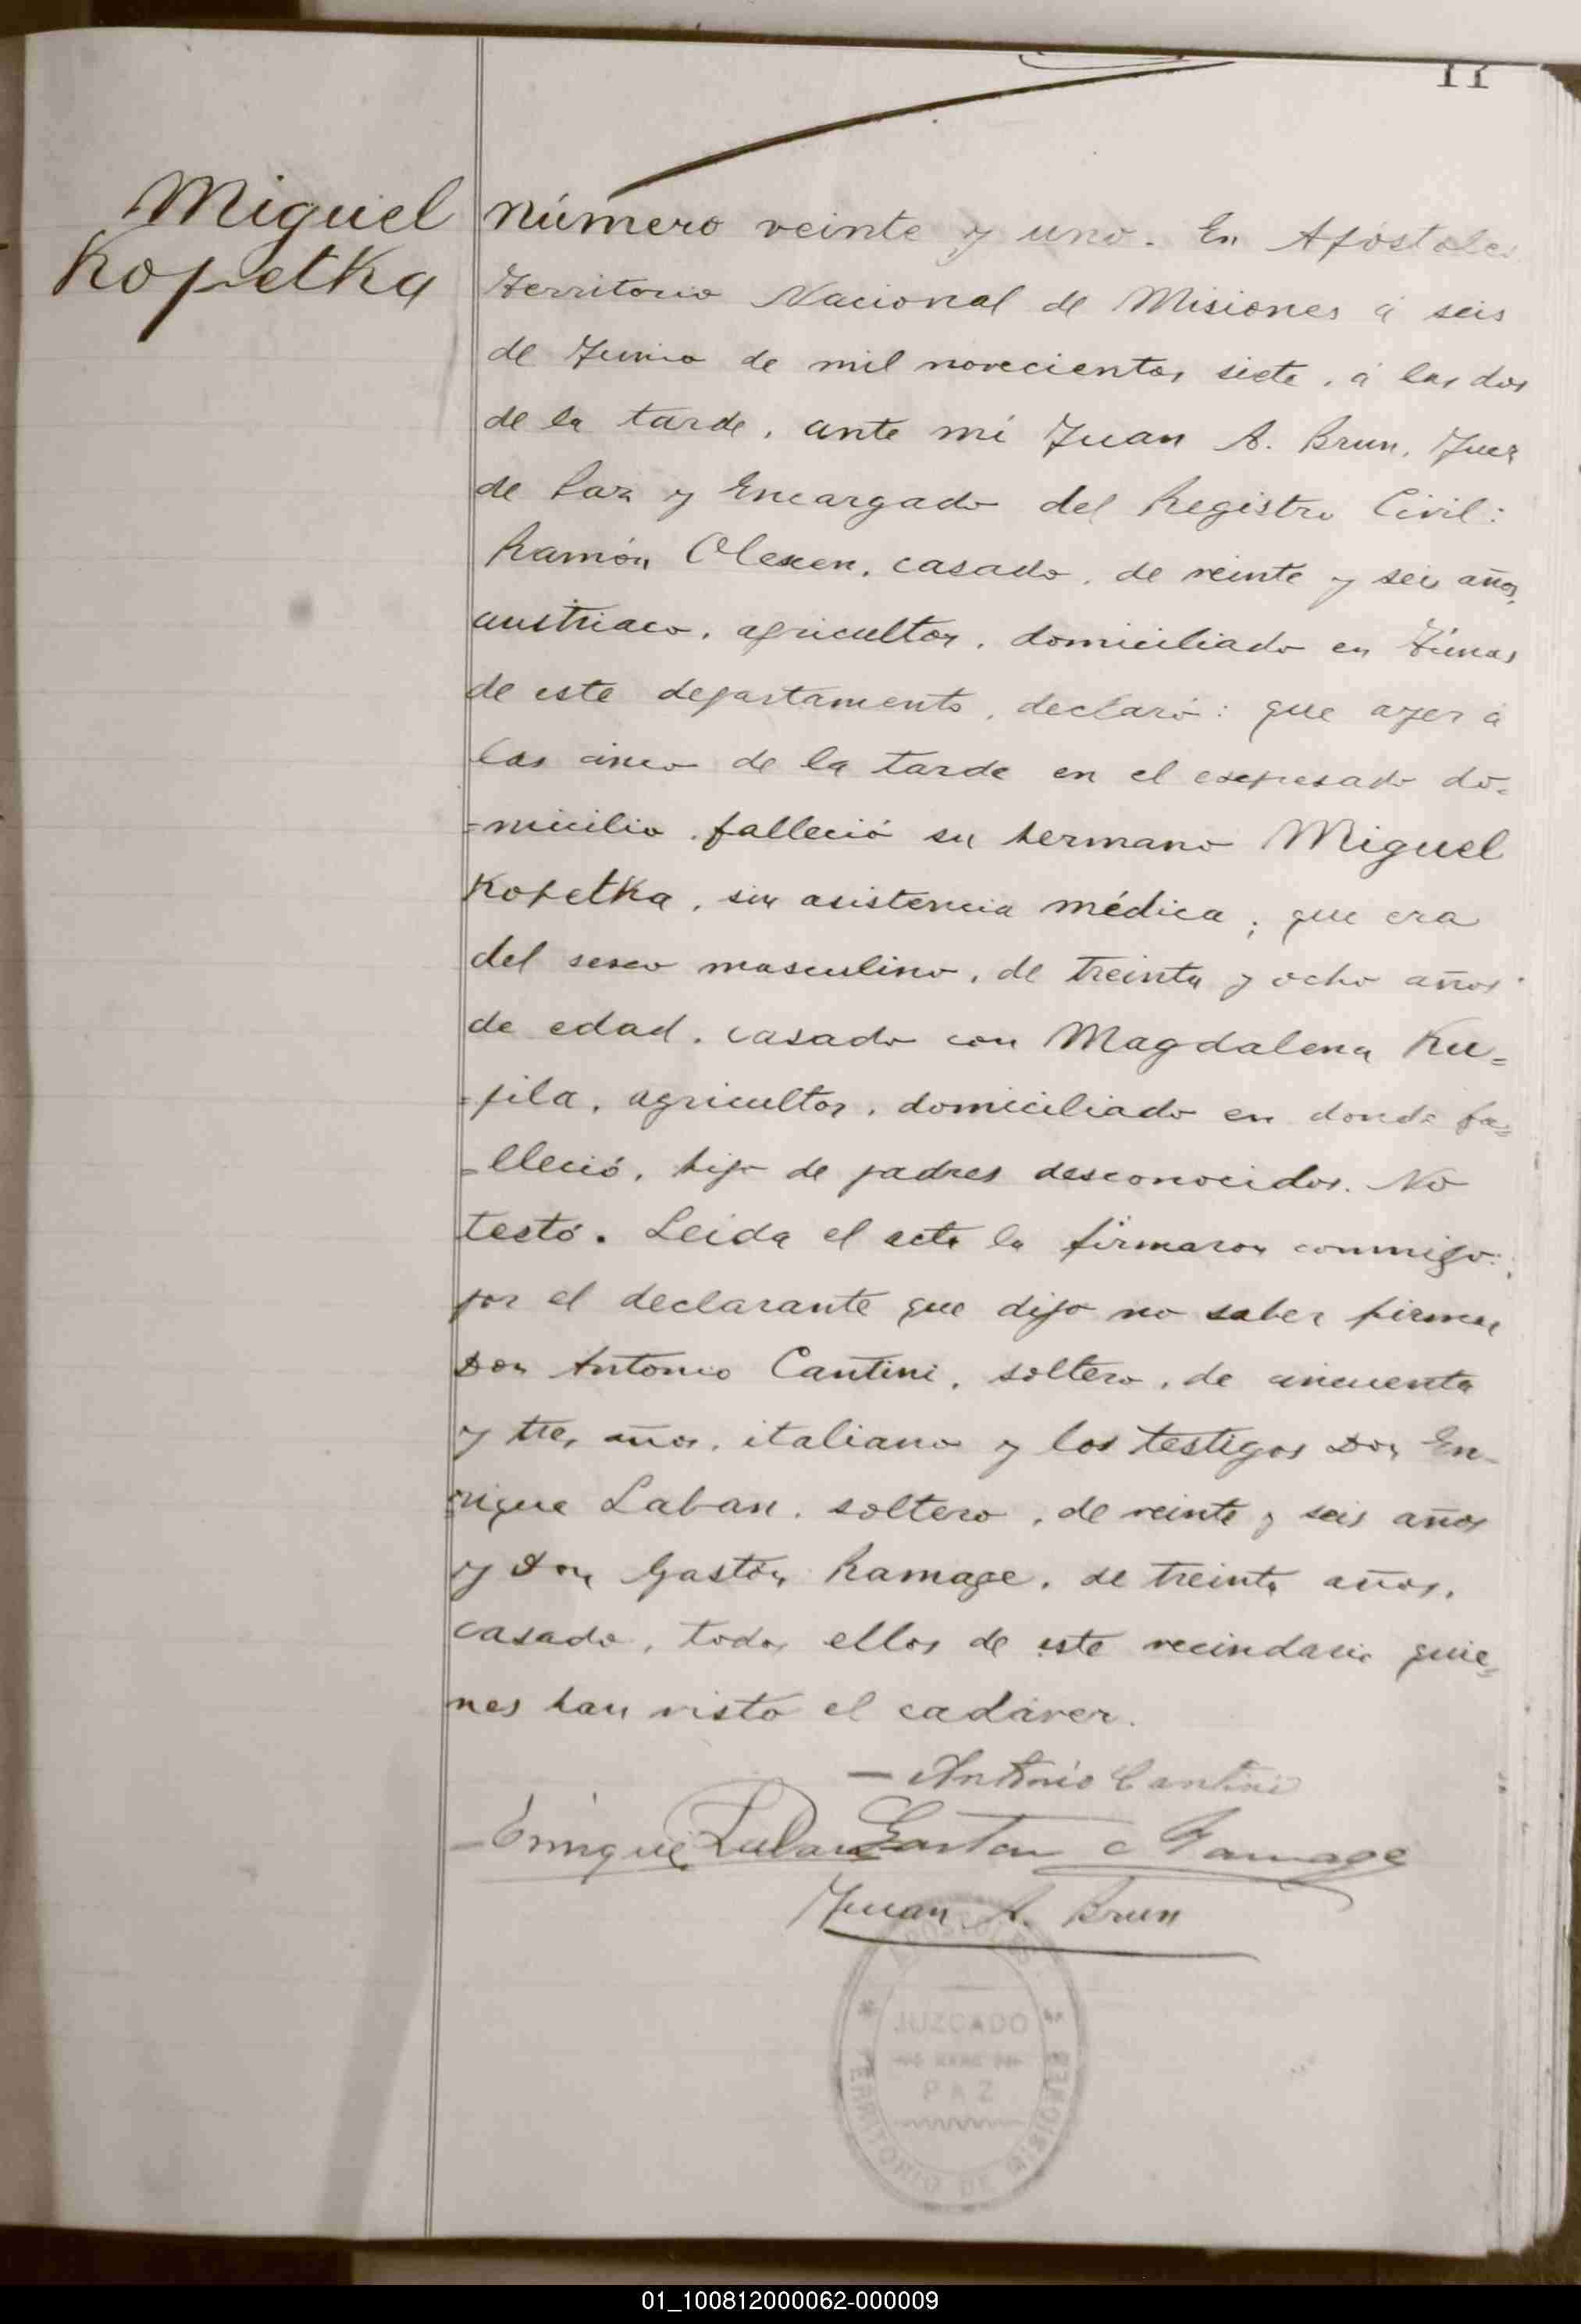 11
Miguel
Kopetka
Número veinte y uno. En Apóstoles
Territorio Nacional de Misiones á seis
de Junio de mil novecientos siete, á las dos
de la tarde, ante mí Juan A. Brun, Juez
de Paz y Encargado del Registro Civil:
Ramón Olexen, casado, de veinte y seis años,
austriaco, agricultor, domiciliado en Tunas
de este departamento, declaró: que ayer á
las cinco de la tarde en el expresado do=
=micilio falleció su hermano Miguel
Kopetka, sin asistencia médica; que era
del sexo masculino, de treinta y ocho años
de edad, casado con Magdalena Ku=
=pila, agricultor, domiciliado en donde fa=
=lleció, hijo de padres desconocidos. No
testó. Leida el acta la firmaron conmigo:
por el declarante que dijo no saber firmar
Don Antonio Cantini, soltero, de cincuenta
y tres años, italiano y los testigos Don En-
rique Laban, soltero, de veinte y seis años
y Don Gastón Ramage, de treinta años,
casado, todos ellos de este vecindario quie=
nes han visto el cadáver.
— Antonio Cantini
— Enrique Laban Gaston C Ramage
Juan A. Brun
APOSTOLES
JUZGADO
PAZ
TERRITORIO DE MISIONES
01_100812000062-000009